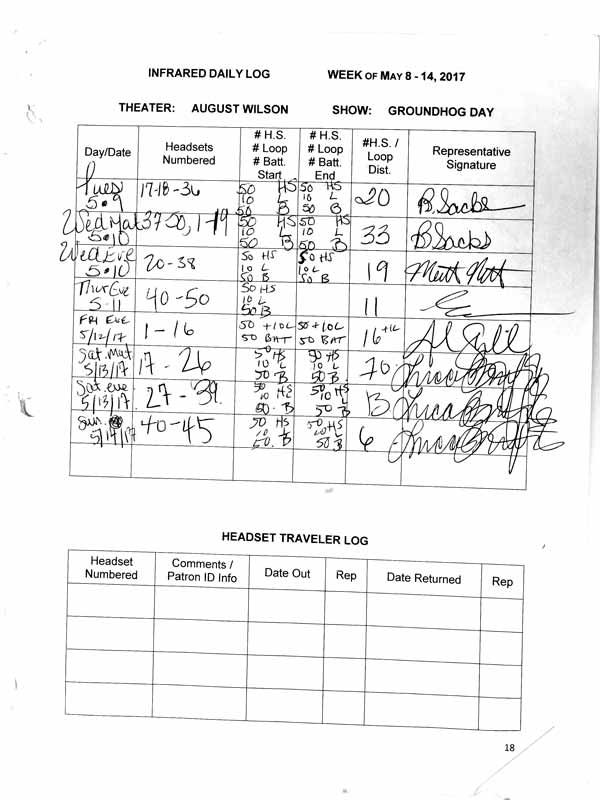 INFRARED DAILY LOG WEEK OF MAY 8 - 14, 2017
THEATER: AUGUST WILSON SHOW: GROUNDHOG DAY
Day/Date
Headsets
Numbered
# H.S.
# Loop
# Batt.
Start
# H.S.
# Loop
# Batt.
End
#H.S. /
Loop
Dist.
Representative
Signature
Tues
5.9
17-18-36
50 HS
10 L
50 B
50 HS
10 L
50 B
20
B. Sacks
Wed Mat
5.10
37-50, 1-19
50 HS
10 L
50 B
50 HS
10 L
50 B
33
B Sacks
Wed Eve
5.10
20-38
50 HS
10 L
50 B
50 HS
10 L
50 B
19
Thur Eve
5-11
40-50
50 HS
10 L
50 B
11
FRI EVE
5/12/17
1-16
50 +10L
50 BAT
50 +10L
50 BAT
16 +1L
Sat. Mat
5/13/17
17 - 26
50 HS
10 L
50 B
50 HS
10 L
50 B
Sat. eve
5/13/17
27 - 39.
50 HS
10 L
50. B
50 HS
10 L
50 B
13
Sun.
5/14/17
40-45
50 HS
10 L
50. B
50 HS
10 L
50 B
6
HEADSET TRAVELER LOG
Headset
Numbered
Comments /
Patron ID Info
Date Out
Rep
Date Returned
Rep
18